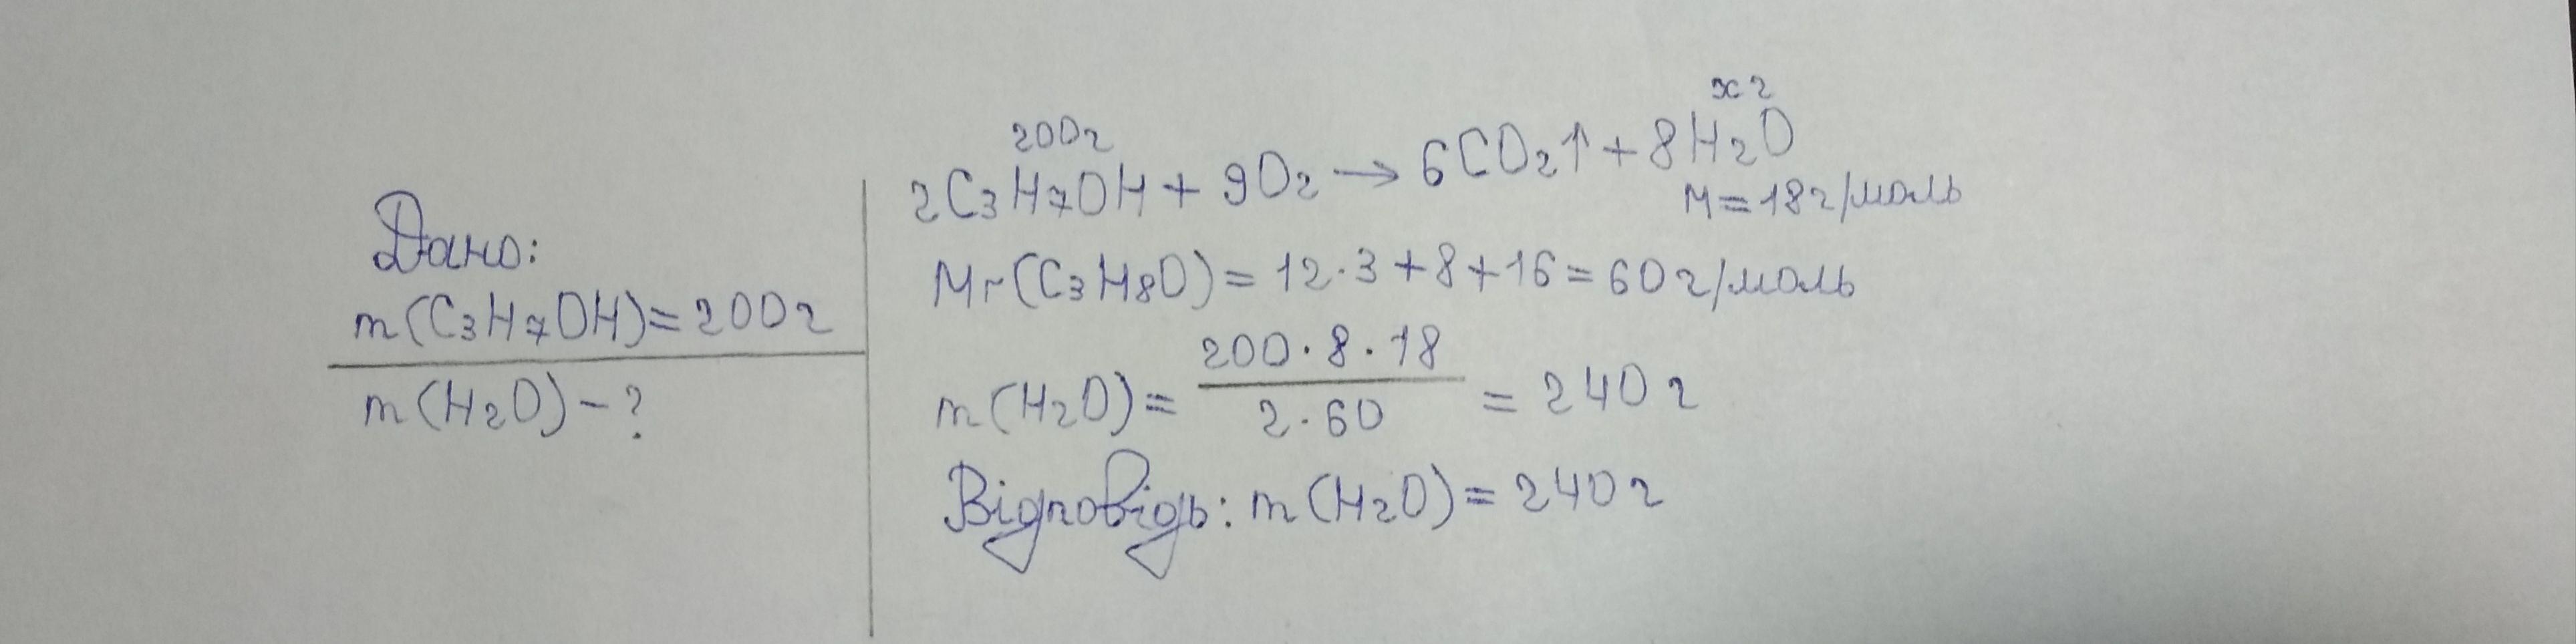 Дано:
m(C3H7OH)=200г
m(H2O)-?
200г
xг
2C3H7OH + 9O2 → 6CO2↑ + 8H2O
M=18г/моль
Mr(C3H8O)= 12·3+8+16=60г/моль
m(H2O)= 200·8·18 / 2·60 = 240г
Відповідь: m(H2O)=240г